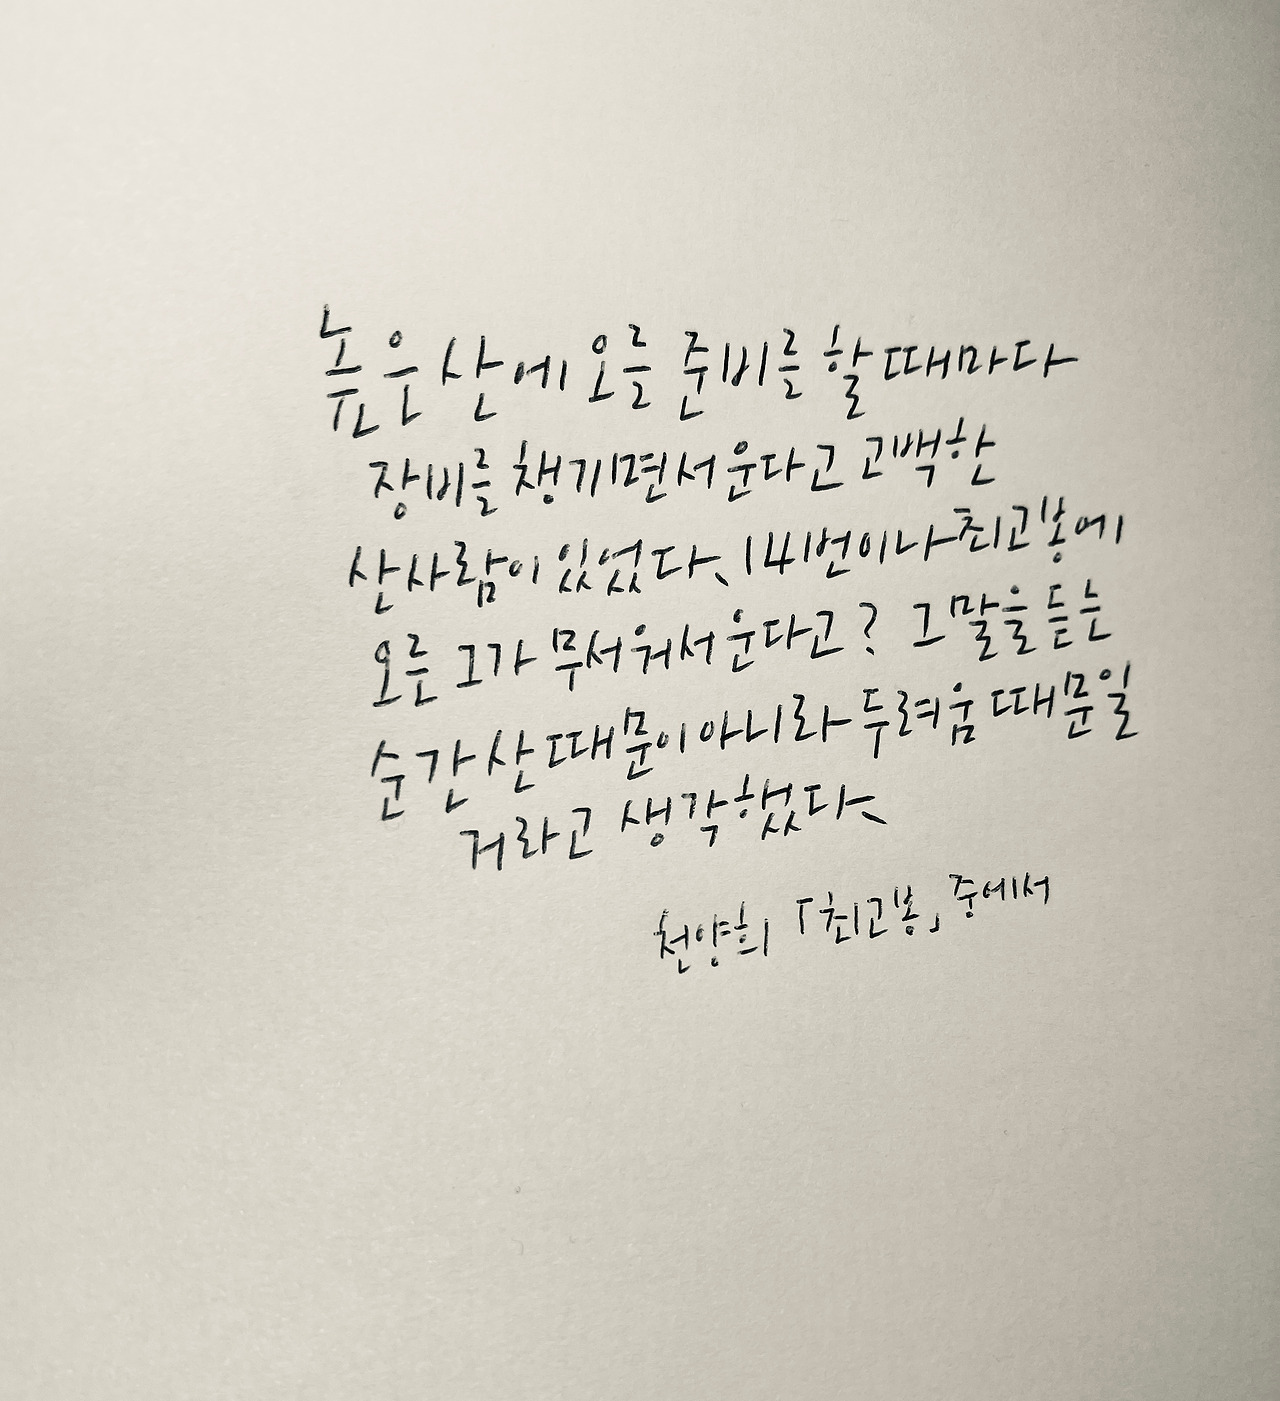 높은 산에 오를 준비를 할 때마다
장비를 챙기면서 운다고 고백한
산사람이 있었다, 14번이나 최고봉에
오른 그가 무서워서 운다고? 그 말을 듣는
순간 산 때문이 아니라 두려움 때문일
거라고 생각했다,
천양희 「최고봉」 중에서